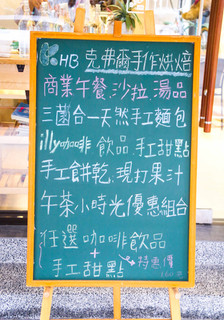 HB 克弗爾手作烘焙
商業午餐.沙拉.湯品
三菌合一天然手工麵包
illy咖啡 飲品 手工甜點
手工餅乾.現打果汁
午茶小時光優惠組合
任選咖啡飲品
+
手工甜點 特惠價